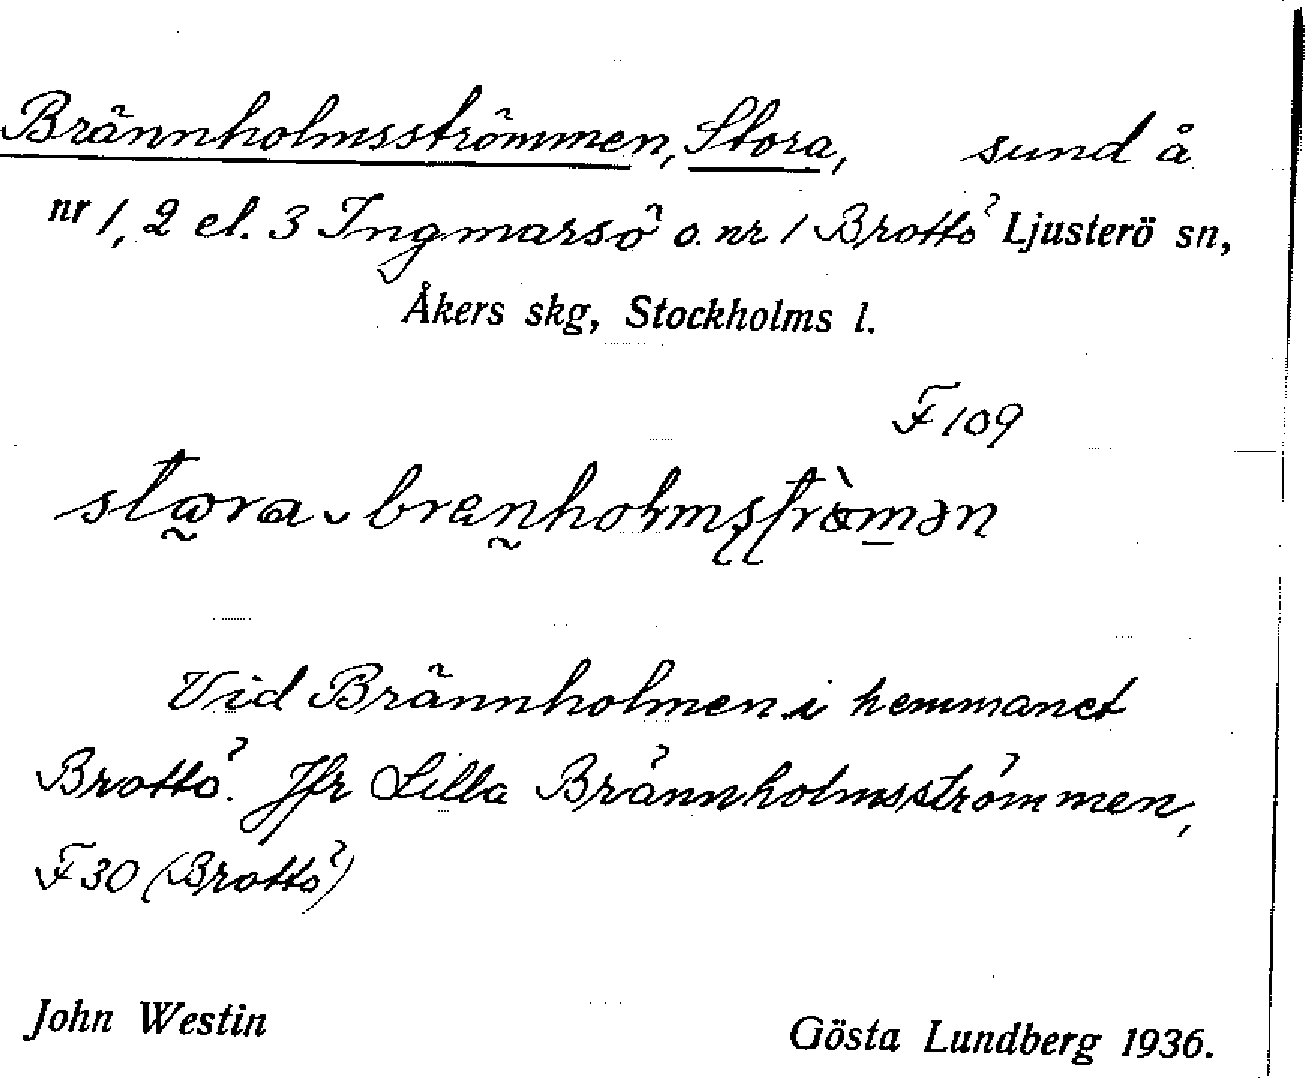 Brännholmsströmmen, Stora, sund å
nr 1, 2 el. 3 Ingmarsö o. nr 1 Brottö Ljusterö sn,
Åkers skg, Stockholms l.
F 109
Vid Brännholmen i hemmanet
Brottö. Jfr Lilla Brännholmsströmmen,
F 30 (Brottö)
John Westin
Gösta Lundberg 1936.